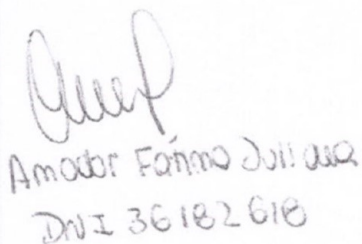 Amador Fatima Juliana
DNI 36182618